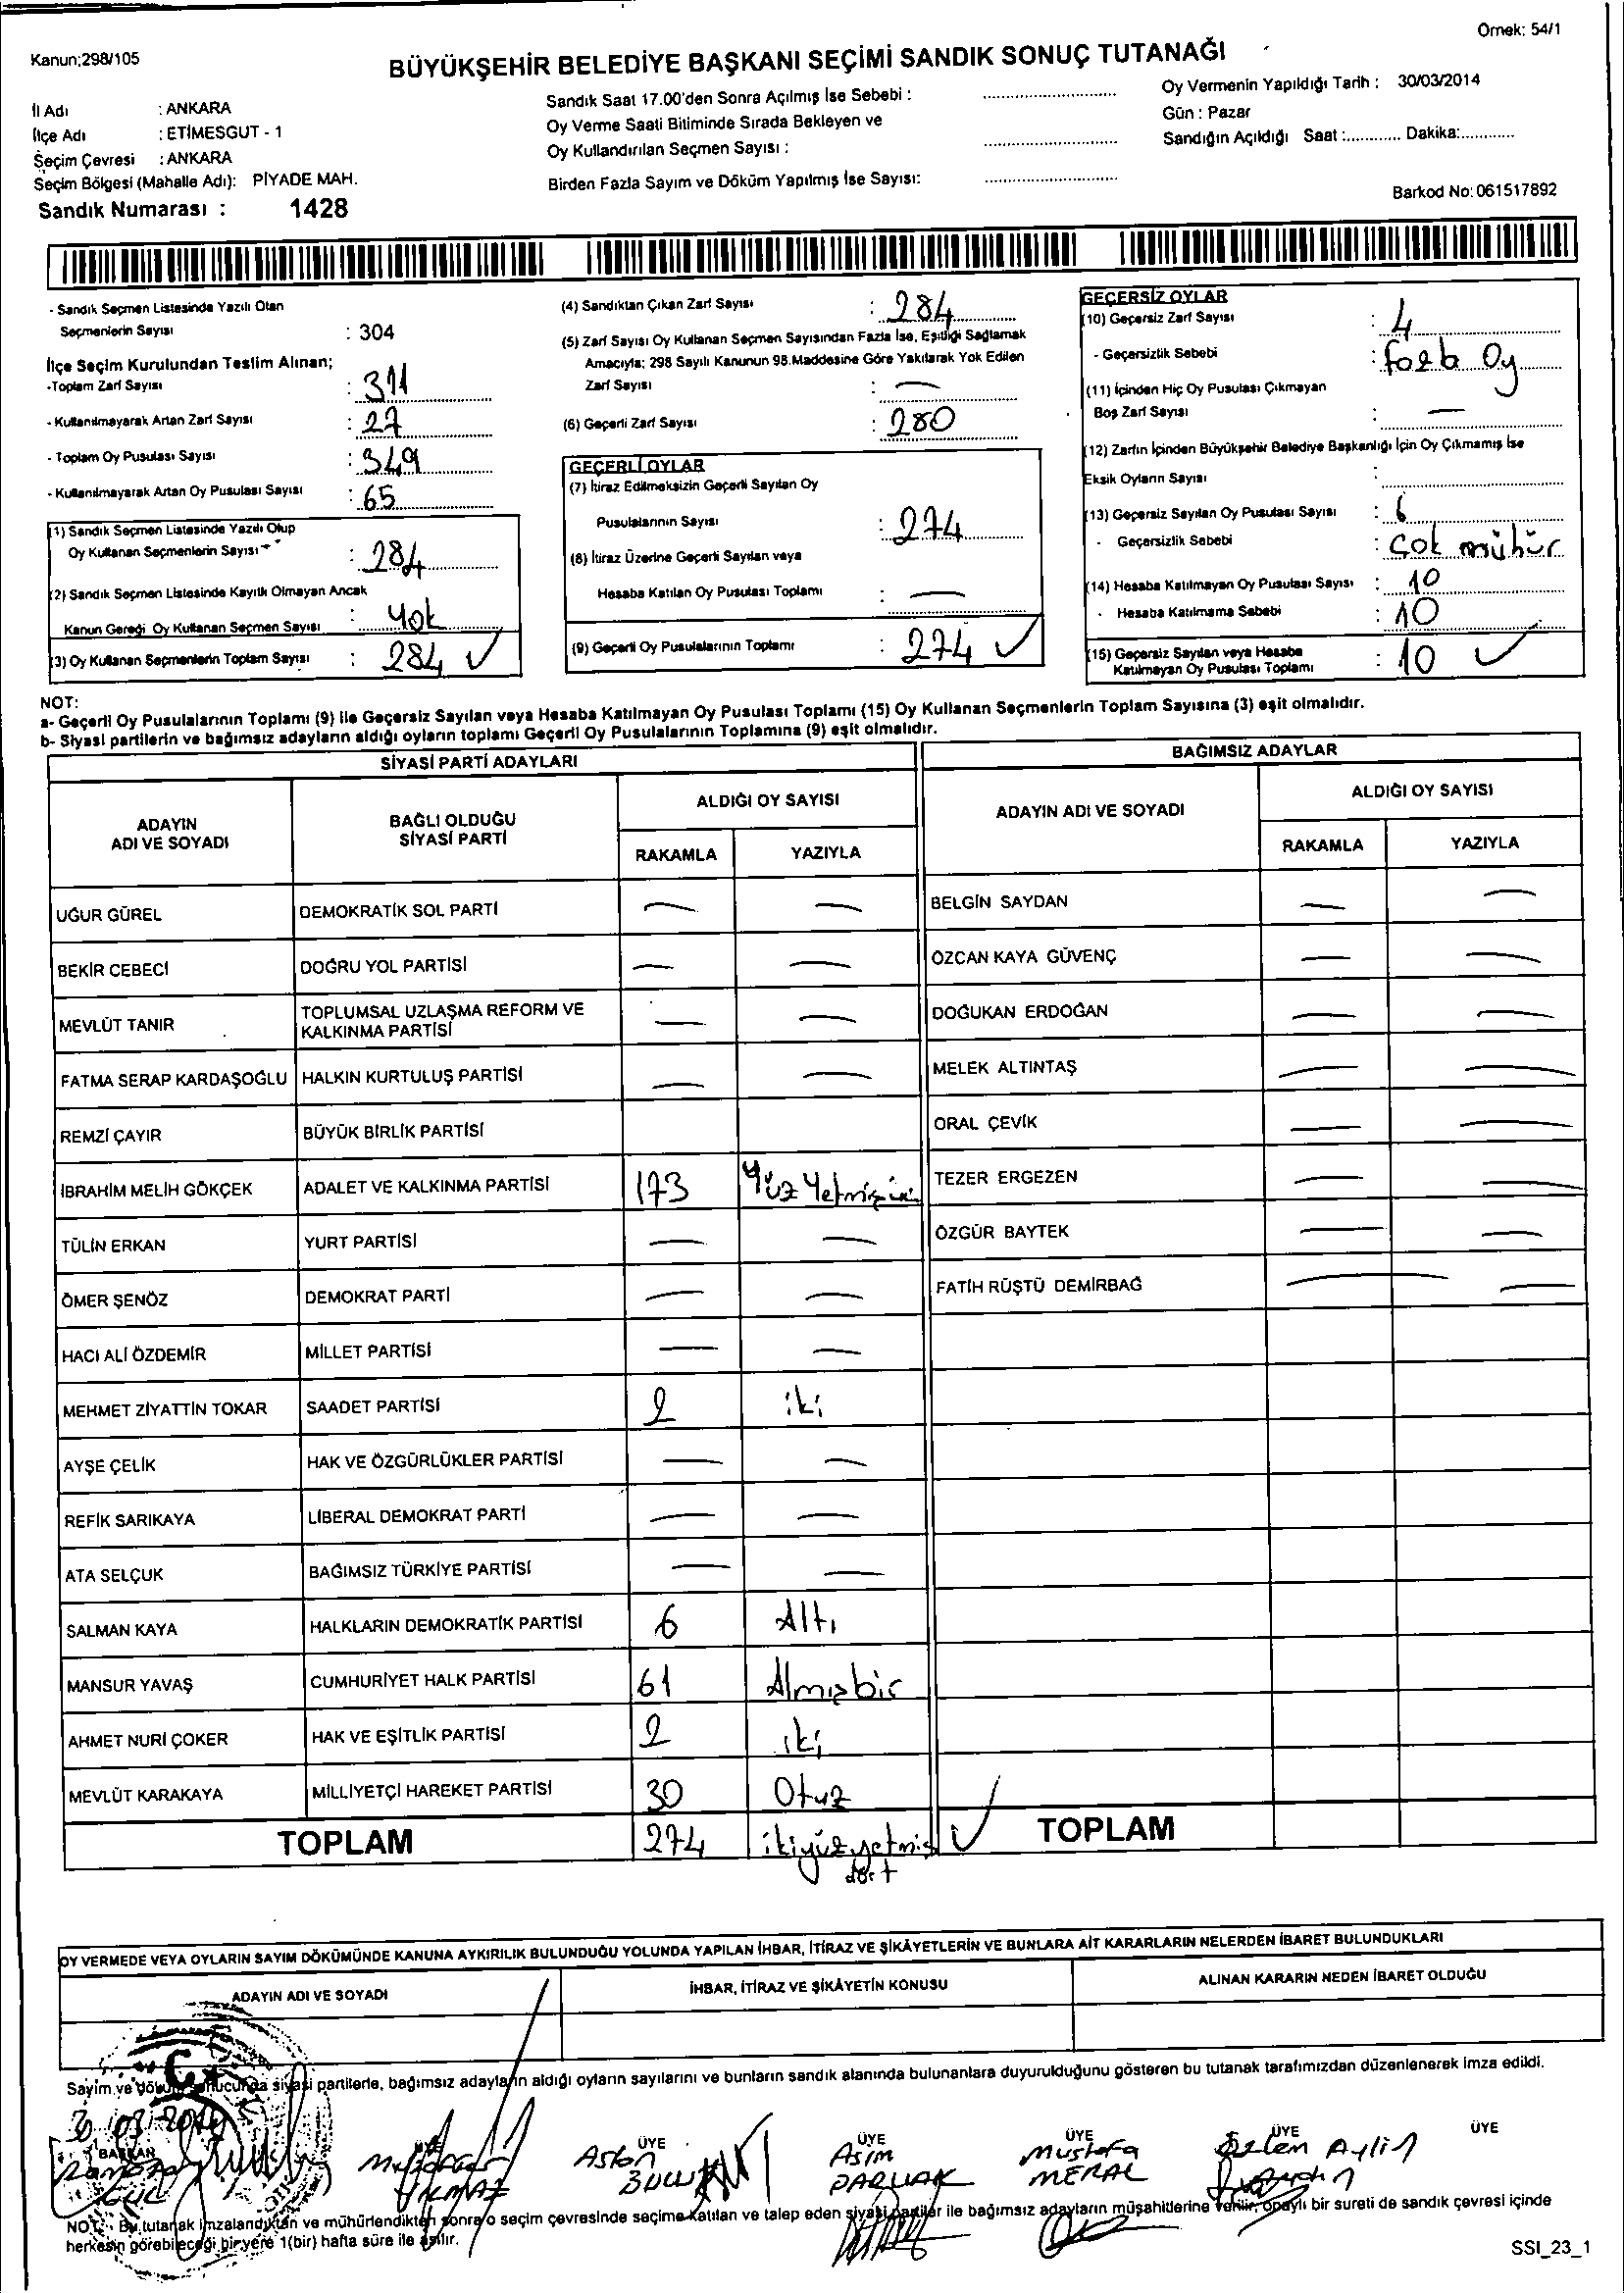 Örnek: 54/1
Kanun;298/105
BÜYÜKŞEHİR BELEDİYE BAŞKANI SEÇİMİ SANDIK SONUÇ TUTANAĞI
İl Adı : ANKARA
İlçe Adı : ETİMESGUT - 1
Seçim Çevresi : ANKARA
Seçim Bölgesi (Mahalle Adı): PİYADE MAH.
Sandık Numarası : 1428
Sandık Saat 17.00'den Sonra Açılmış İse Sebebi :
Oy Verme Saati Bitiminde Sırada Bekleyen ve
Oy Kullandırılan Seçmen Sayısı :
Birden Fazla Sayım ve Döküm Yapılmış İse Sayısı:
Oy Vermenin Yapıldığı Tarih : 30/03/2014
Gün : Pazar
Sandığın Açıldığı Saat :............ Dakika:............
Barkod No: 061517892
- Sandık Seçmen Listesinde Yazılı Olan
Seçmenlerin Sayısı : 304
İlçe Seçim Kurulundan Teslim Alınan;
-Toplam Zarf Sayısı : 311
- Kullanılmayarak Artan Zarf Sayısı : 27
- Toplam Oy Pusulası Sayısı : 349
- Kullanılmayarak Artan Oy Pusulası Sayısı : 65
(1) Sandık Seçmen Listesinde Yazılı Olup
Oy Kullanan Seçmenlerin Sayısı : 284
(2) Sandık Seçmen Listesinde Kayıtlı Olmayan Ancak
Kanun Gereği Oy Kullanan Seçmen Sayısı : Yok
(3) Oy Kullanan Seçmenlerin Toplam Sayısı : 284 ✓
(4) Sandıktan Çıkan Zarf Sayısı : 284
(5) Zarf Sayısı Oy Kullanan Seçmen Sayısından Fazla İse, Eşitliği Sağlamak
Amacıyla; 298 Sayılı Kanunun 98.Maddesine Göre Yakılarak Yok Edilen
Zarf Sayısı : —
(6) Geçerli Zarf Sayısı : 280
GEÇERLİ OYLAR
(7) İtiraz Edilmeksizin Geçerli Sayılan Oy
Pusulalarının Sayısı : 274
(8) İtiraz Üzerine Geçerli Sayılan veya
Hesaba Katılan Oy Pusulası Toplamı : —
(9) Geçerli Oy Pusulalarının Toplamı : 274 ✓
GEÇERSİZ OYLAR
(10) Geçersiz Zarf Sayısı : 4
- Geçersizlik Sebebi : fazla Oy
(11) İçinden Hiç Oy Pusulası Çıkmayan
Boş Zarf Sayısı : —
(12) Zarfın İçinden Büyükşehir Belediye Başkanlığı İçin Oy Çıkmamış İse
Eksik Oyların Sayısı :
(13) Geçersiz Sayılan Oy Pusulası Sayısı : 6
- Geçersizlik Sebebi : Çok mühür
(14) Hesaba Katılmayan Oy Pusulası Sayısı : 10
- Hesaba Katılmama Sebebi : 10
(15) Geçersiz Sayılan veya Hesaba
Katılmayan Oy Pusulası Toplamı : 10 ✓
NOT:
a- Geçerli Oy Pusulalarının Toplamı (9) ile Geçersiz Sayılan veya Hesaba Katılmayan Oy Pusulası Toplamı (15) Oy Kullanan Seçmenlerin Toplam Sayısına (3) eşit olmalıdır.
b- Siyasi partilerin ve bağımsız adayların aldığı oyların toplamı Geçerli Oy Pusulalarının Toplamına (9) eşit olmalıdır.
SİYASİ PARTİ ADAYLARI
ADAYIN ADI VE SOYADI
BAĞLI OLDUĞU SİYASİ PARTİ
ALDIĞI OY SAYISI
RAKAMLA YAZIYLA
UĞUR GÜREL DEMOKRATİK SOL PARTİ — —
BEKİR CEBECİ DOĞRU YOL PARTİSİ — —
MEVLÜT TANIR TOPLUMSAL UZLAŞMA REFORM VE KALKINMA PARTİSİ — —
FATMA SERAP KARDAŞOĞLU HALKIN KURTULUŞ PARTİSİ — —
REMZİ ÇAYIR BÜYÜK BİRLİK PARTİSİ
İBRAHİM MELİH GÖKÇEK ADALET VE KALKINMA PARTİSİ 173 Yüz Yetmiş
TÜLİN ERKAN YURT PARTİSİ — —
ÖMER ŞENÖZ DEMOKRAT PARTİ — —
HACI ALİ ÖZDEMİR MİLLET PARTİSİ — —
MEHMET ZİYATTİN TOKAR SAADET PARTİSİ 2 iki
AYŞE ÇELİK HAK VE ÖZGÜRLÜKLER PARTİSİ — —
REFİK SARIKAYA LİBERAL DEMOKRAT PARTİ — —
ATA SELÇUK BAĞIMSIZ TÜRKİYE PARTİSİ — —
SALMAN KAYA HALKLARIN DEMOKRATİK PARTİSİ 6 Altı
MANSUR YAVAŞ CUMHURİYET HALK PARTİSİ 61 Almışbir
AHMET NURİ ÇOKER HAK VE EŞİTLİK PARTİSİ 2 iki
MEVLÜT KARAKAYA MİLLİYETÇİ HAREKET PARTİSİ 30 Otuz
TOPLAM 274 ikiyüz yetmiş dört ✓
BAĞIMSIZ ADAYLAR
ADAYIN ADI VE SOYADI
ALDIĞI OY SAYISI
RAKAMLA YAZIYLA
BELGİN SAYDAN — —
ÖZCAN KAYA GÜVENÇ — —
DOĞUKAN ERDOĞAN — —
MELEK ALTINTAŞ — —
ORAL ÇEVİK — —
TEZER ERGEZEN — —
ÖZGÜR BAYTEK — —
FATİH RÜŞTÜ DEMİRBAĞ — —
TOPLAM
OY VERMEDE VEYA OYLARIN SAYIM DÖKÜMÜNDE KANUNA AYKIRILIK BULUNDUĞU YOLUNDA YAPILAN İHBAR, İTİRAZ VE ŞİKÂYETLERİN VE BUNLARA AİT KARARLARIN NELERDEN İBARET BULUNDUKLARI
ADAYIN ADI VE SOYADI
İHBAR, İTİRAZ VE ŞİKÂYETİN KONUSU
ALINAN KARARIN NEDEN İBARET OLDUĞU
Sayım ve döküm sonucunda siyasi partilerle, bağımsız adayların aldığı oyların sayılarını ve bunların sandık alanında bulunanlara duyurulduğunu gösteren bu tutanak tarafımızdan düzenlenerek imza edildi.
30/03/2014
BAŞKAN ÜYE ÜYE ÜYE ÜYE ÜYE
Ramazan GÜL
YILMAZ
Aslan
Asim PARLAK
Mustafa MERAL
Özlem Aylin
NOT: Bu tutanak imzalandıktan ve mühürlendikten sonra o seçim çevresinde seçime katılan ve talep eden siyasi partiler ile bağımsız adayların müşahitlerine verilir, onaylı bir sureti de sandık çevresi içinde
herkesin görebileceği bir yere 1(bir) hafta süre ile asılır.
SSI_23_1